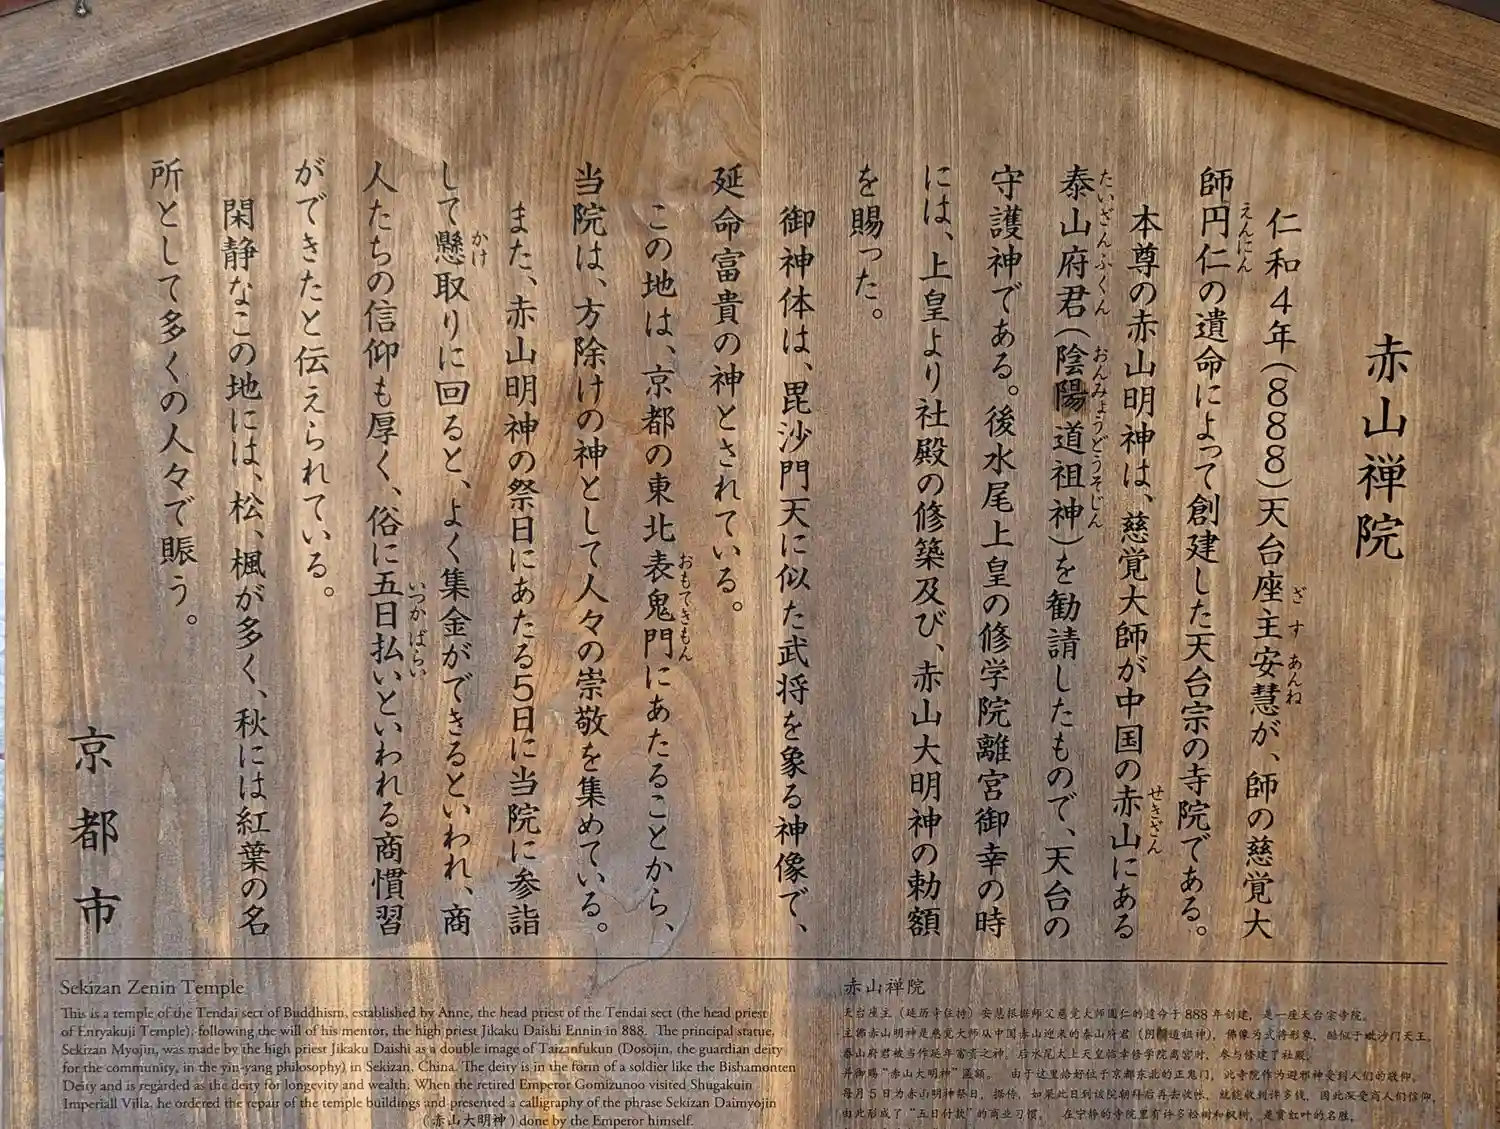 赤山禅院
仁和４年（８８８）天台座主安慧が、師の慈覚大
師円仁の遺命によって創建した天台宗の寺院である。
本尊の赤山明神は、慈覚大師が中国の赤山にある
泰山府君（陰陽道祖神）を勧請したもので、天台の
守護神である。後水尾上皇の修学院離宮御幸の時
には、上皇より社殿の修築及び、赤山大明神の勅額
を賜った。
御神体は、毘沙門天に似た武将を象る神像で、
延命富貴の神とされている。
この地は、京都の東北表鬼門にあたることから、
当院は、方除けの神として人々の崇敬を集めている。
また、赤山明神の祭日にあたる５日に当院に参詣
して懸取りに回ると、よく集金ができるといわれ、商
人たちの信仰も厚く、俗に五日払いといわれる商慣習
ができたと伝えられている。
閑静なこの地には、松、楓が多く、秋には紅葉の名
所として多くの人々で賑う。
京都市
ざす あんね
えんにん
せきざん
たいざんふくん
おんみょうどうそじん
おもてきもん
かけ
いつかばらい
Sekizan Zenin Temple
This is a temple of the Tendai sect of Buddhism, established by Anne, the head priest of the Tendai sect (the head priest
of Enryakuji Temple), following the will of his mentor, the high priest Jikaku Daishi Ennin in 888. The principal statue,
Sekizan Myojin, was made by the high priest Jikaku Daishi as a double image of Taizanfukun (Dosojin, the guardian deity
for the community, in the yin-yang philosophy) in Sekizan, China. The deity is in the form of a soldier like the Bishamonten
Deity and is regarded as the deity for longevity and wealth. When the retired Emperor Gomizunoo visited Shugakuin
Imperiall Villa, he ordered the repair of the temple buildings and presented a calligraphy of the phrase Sekizan Daimyojin
(赤山大明神) done by the Emperor himself.
赤山禅院
天台座主（延历寺住持）安慧根据师父慈觉大师圆仁的遗命于888年创建，是一座天台宗寺院。
主佛赤山明神是慈觉大师从中国赤山迎来的泰山府君（阴道祖神），佛像为武将形象，酷似于毗沙门天王。
泰山府君被当作延年富贵之神，后水尾太上天皇临幸修学院离宫时，参与修建了社殿，
并御赐“赤山大明神”匾额。 由于这里恰好位于京都东北的正鬼门，此寺院作为避邪神受到人们的敬仰。
每月5日为赤山明神祭日，据传，如果此日到该院朝拜后再去收帐，就能收到许多钱，因此深受商人们信仰，
由此形成了“五日付款”的商业习惯。 在宁静的寺院里有许多松树和枫树，是赏红叶的名胜。